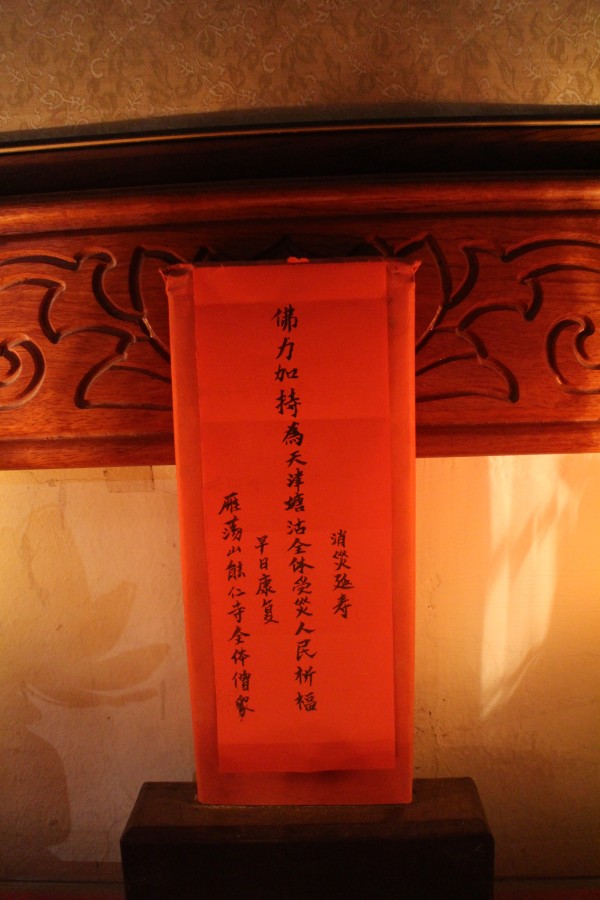 消災延寿
佛力加持為天津塘沽全体受災人民祈福
早日康复
雁荡山能仁寺全体僧眾